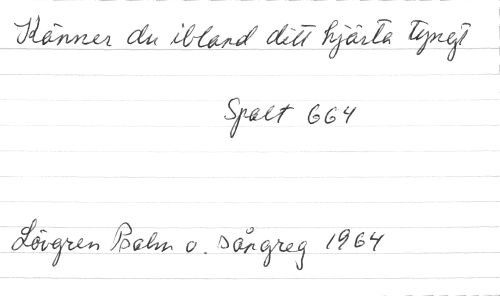 Känner du ibland ditt hjärta tyngt
Spalt 664
Lövgren Psalm o. sångreg 1964